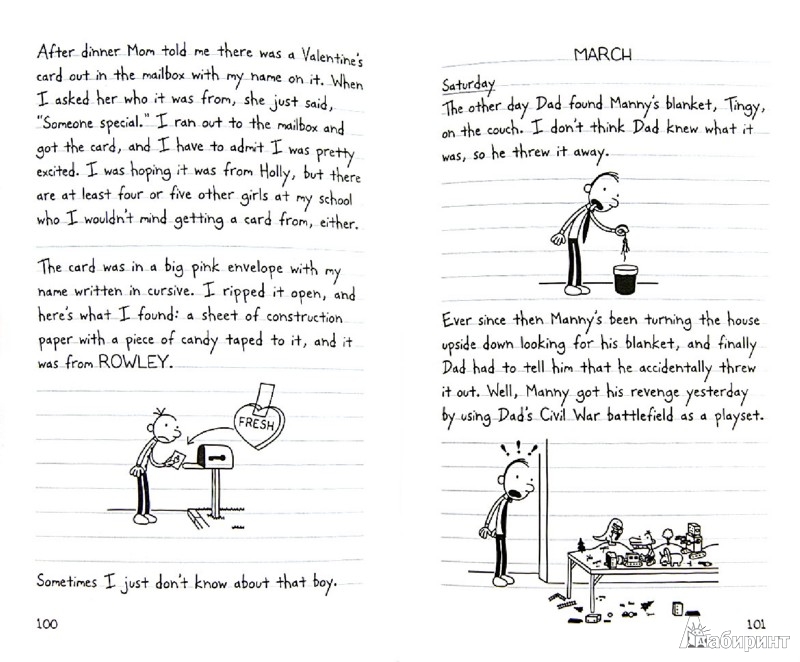 After dinner Mom told me there was a Valentine's
card out in the mailbox with my name on it. When
I asked her who it was from, she just said,
"Someone special." I ran out to the mailbox and
got the card, and I have to admit I was pretty
excited. I was hoping it was from Holly, but there
are at least four or five other girls at my school
who I wouldn't mind getting a card from, either.
The card was in a big pink envelope with my
name written in cursive. I ripped it open, and
here's what I found: a sheet of construction
paper with a piece of candy taped to it, and it
was from ROWLEY.
FRESH
Sometimes I just don't know about that boy.
100
MARCH
Saturday
The other day Dad found Manny's blanket, Tingy,
on the couch. I don't think Dad knew what it
was, so he threw it away.
Ever since then Manny's been turning the house
upside down looking for his blanket, and finally
Dad had to tell him that he accidentally threw
it out. Well, Manny got his revenge yesterday
by using Dad's Civil War battlefield as a playset.
! ! !
101
Лабиринт